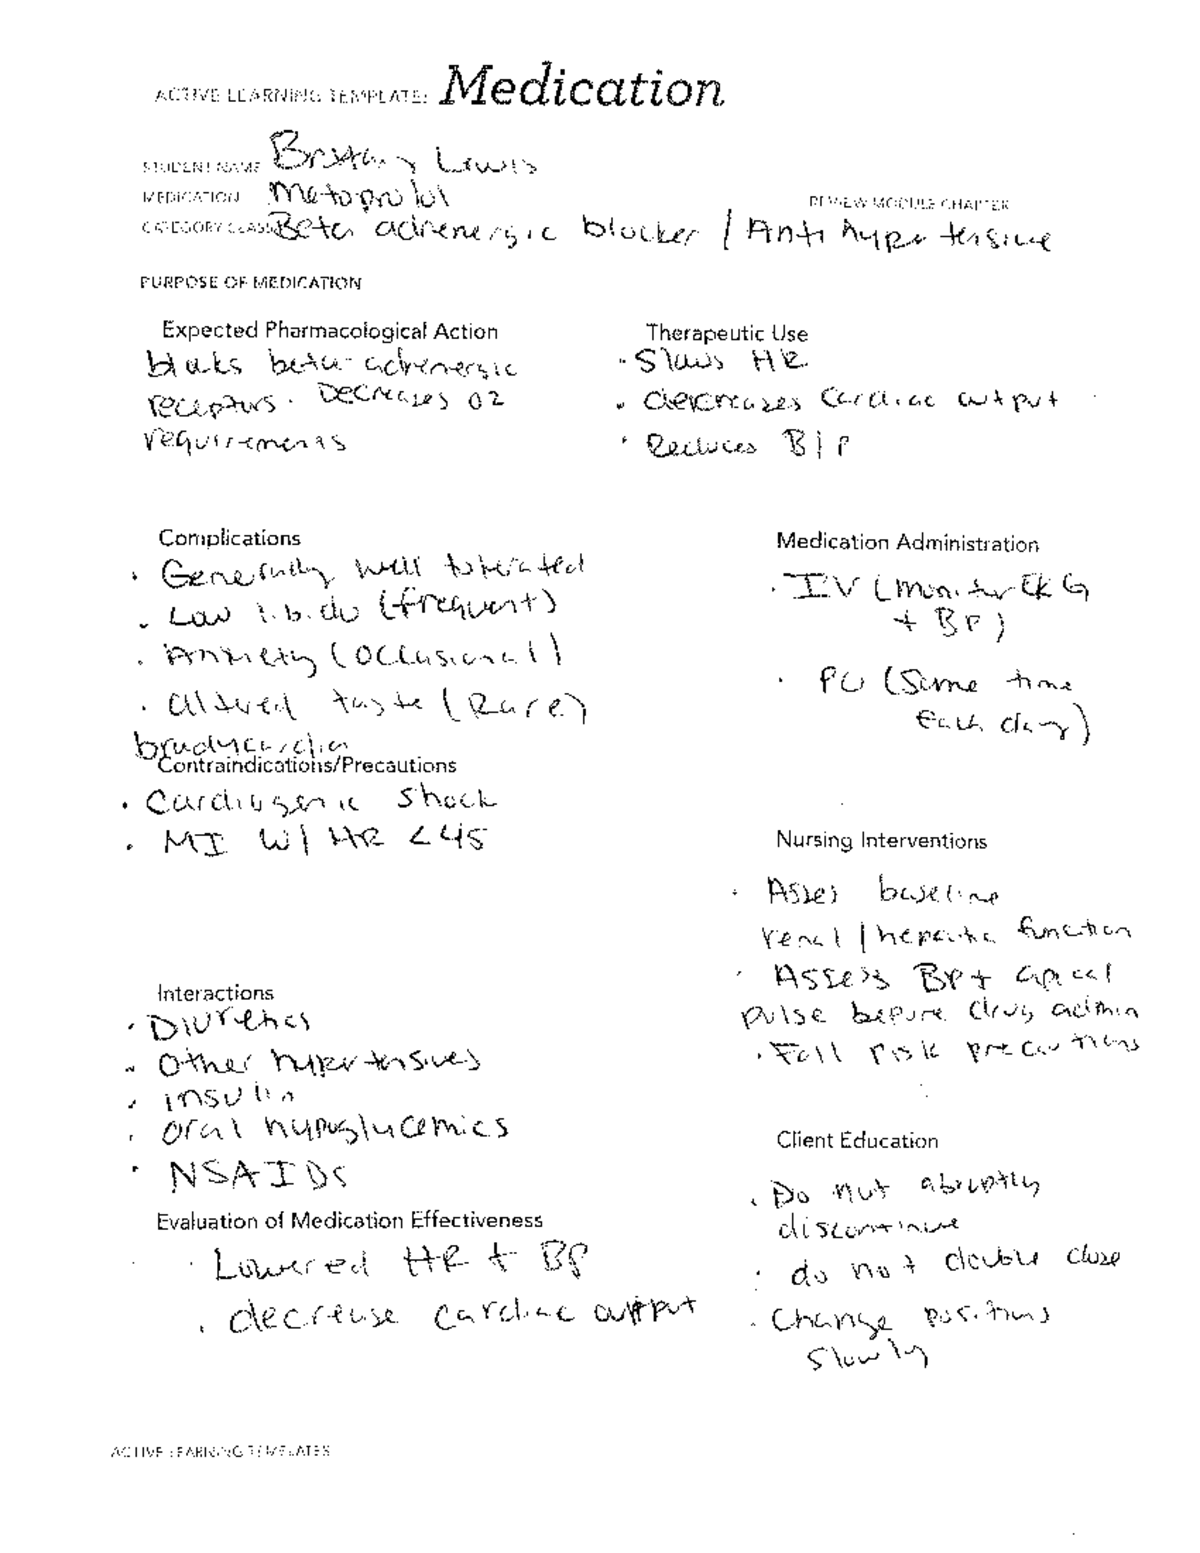 ACTIVE LEARNING TEMPLATE: Medication
STUDENT NAME Brittany Lewis
MEDICATION Metoprolol
REVIEW MODULE CHAPTER
CATEGORY CLASS Beta adrenergic blocker / Anti hypertensive
PURPOSE OF MEDICATION
Expected Pharmacological Action
bloks beta-adrenergic
receptors. Decreases O2
requirements
Therapeutic Use
• Slows HR
• decreases Cardiac output
• Reduces B/P
Complications
• Generally well tolerated
• Low libido (frequent)
• Anxiety (occasional)
• altered taste (Rare)
bradycardia
Medication Administration
• IV (Monitor EKG
+ BP)
• PO (Same time
Each day)
Contraindications/Precautions
• Cardiogenic Shock
• MI W/ HR <45
Nursing Interventions
• Asses baseline
renal / hepatic function
• Assess BP + apical
pulse before drug admin
• Fall risk precautions
Interactions
• Diuretics
• Other hypertensives
• insulin
• oral hypoglycemics
• NSAIDS
Client Education
• Do not abruptly
discontinue
• do not double dose
• Change positions
Slowly
Evaluation of Medication Effectiveness
• Lowered HR + BP
• decrease cardiac output
ACTIVE LEARNING TEMPLATES